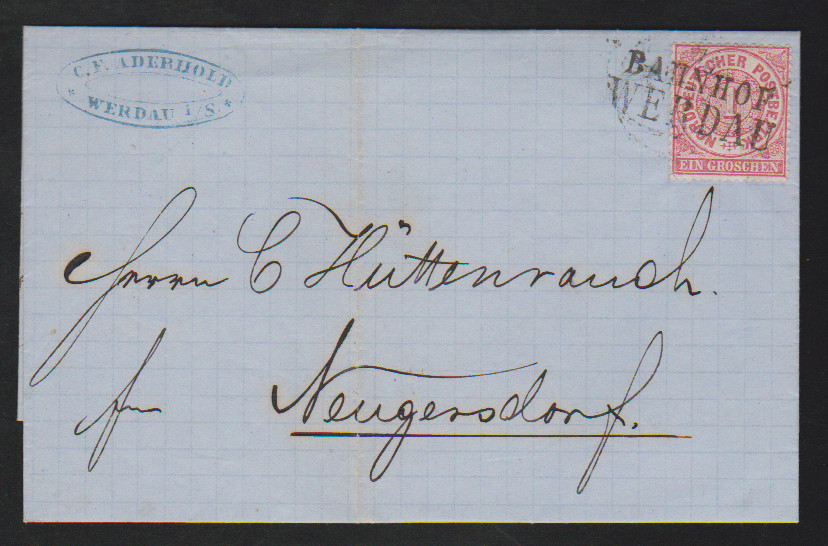 C. F. ADERHOLD
WERDAU I/S.
BAHNHOF
WERDAU
NORDDEUTSCHER POSTBEZIRK
EIN GROSCHEN
Herrn C Hüttenrauch.
in Neugersdorf.